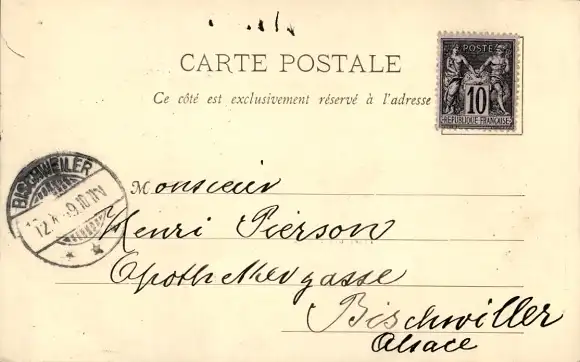 CARTE POSTALE
Ce côté est exclusivement réservé à l'adresse
POSTE
10
REPUBLIQUE FRANÇAISE
BISCHWEILER
Monsieur
Henri Pierson
Apothekergasse
Bischwiller
Alsace